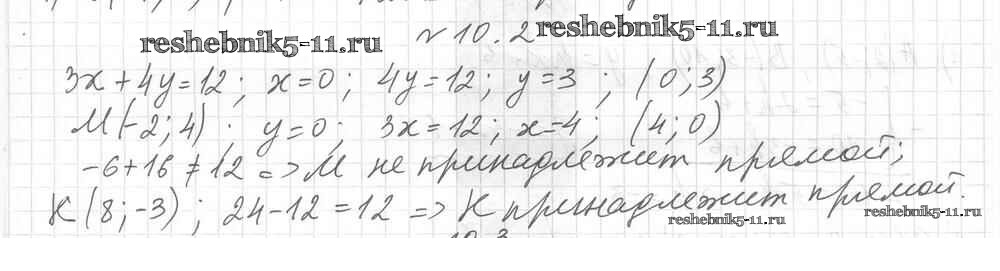 reshebnik5-11.ru № 10.2 reshebnik5-11.ru
3x+4y=12; x=0; 4y=12; y=3; (0;3)
M(-2;4). y=0; 3x=12; x=4; (4;0)
-6+16≠12 => M не принадлежит прямой;
K(8;-3); 24-12=12 => K принадлежит прямой.
reshebnik5-11.ru reshebnik5-11.ru